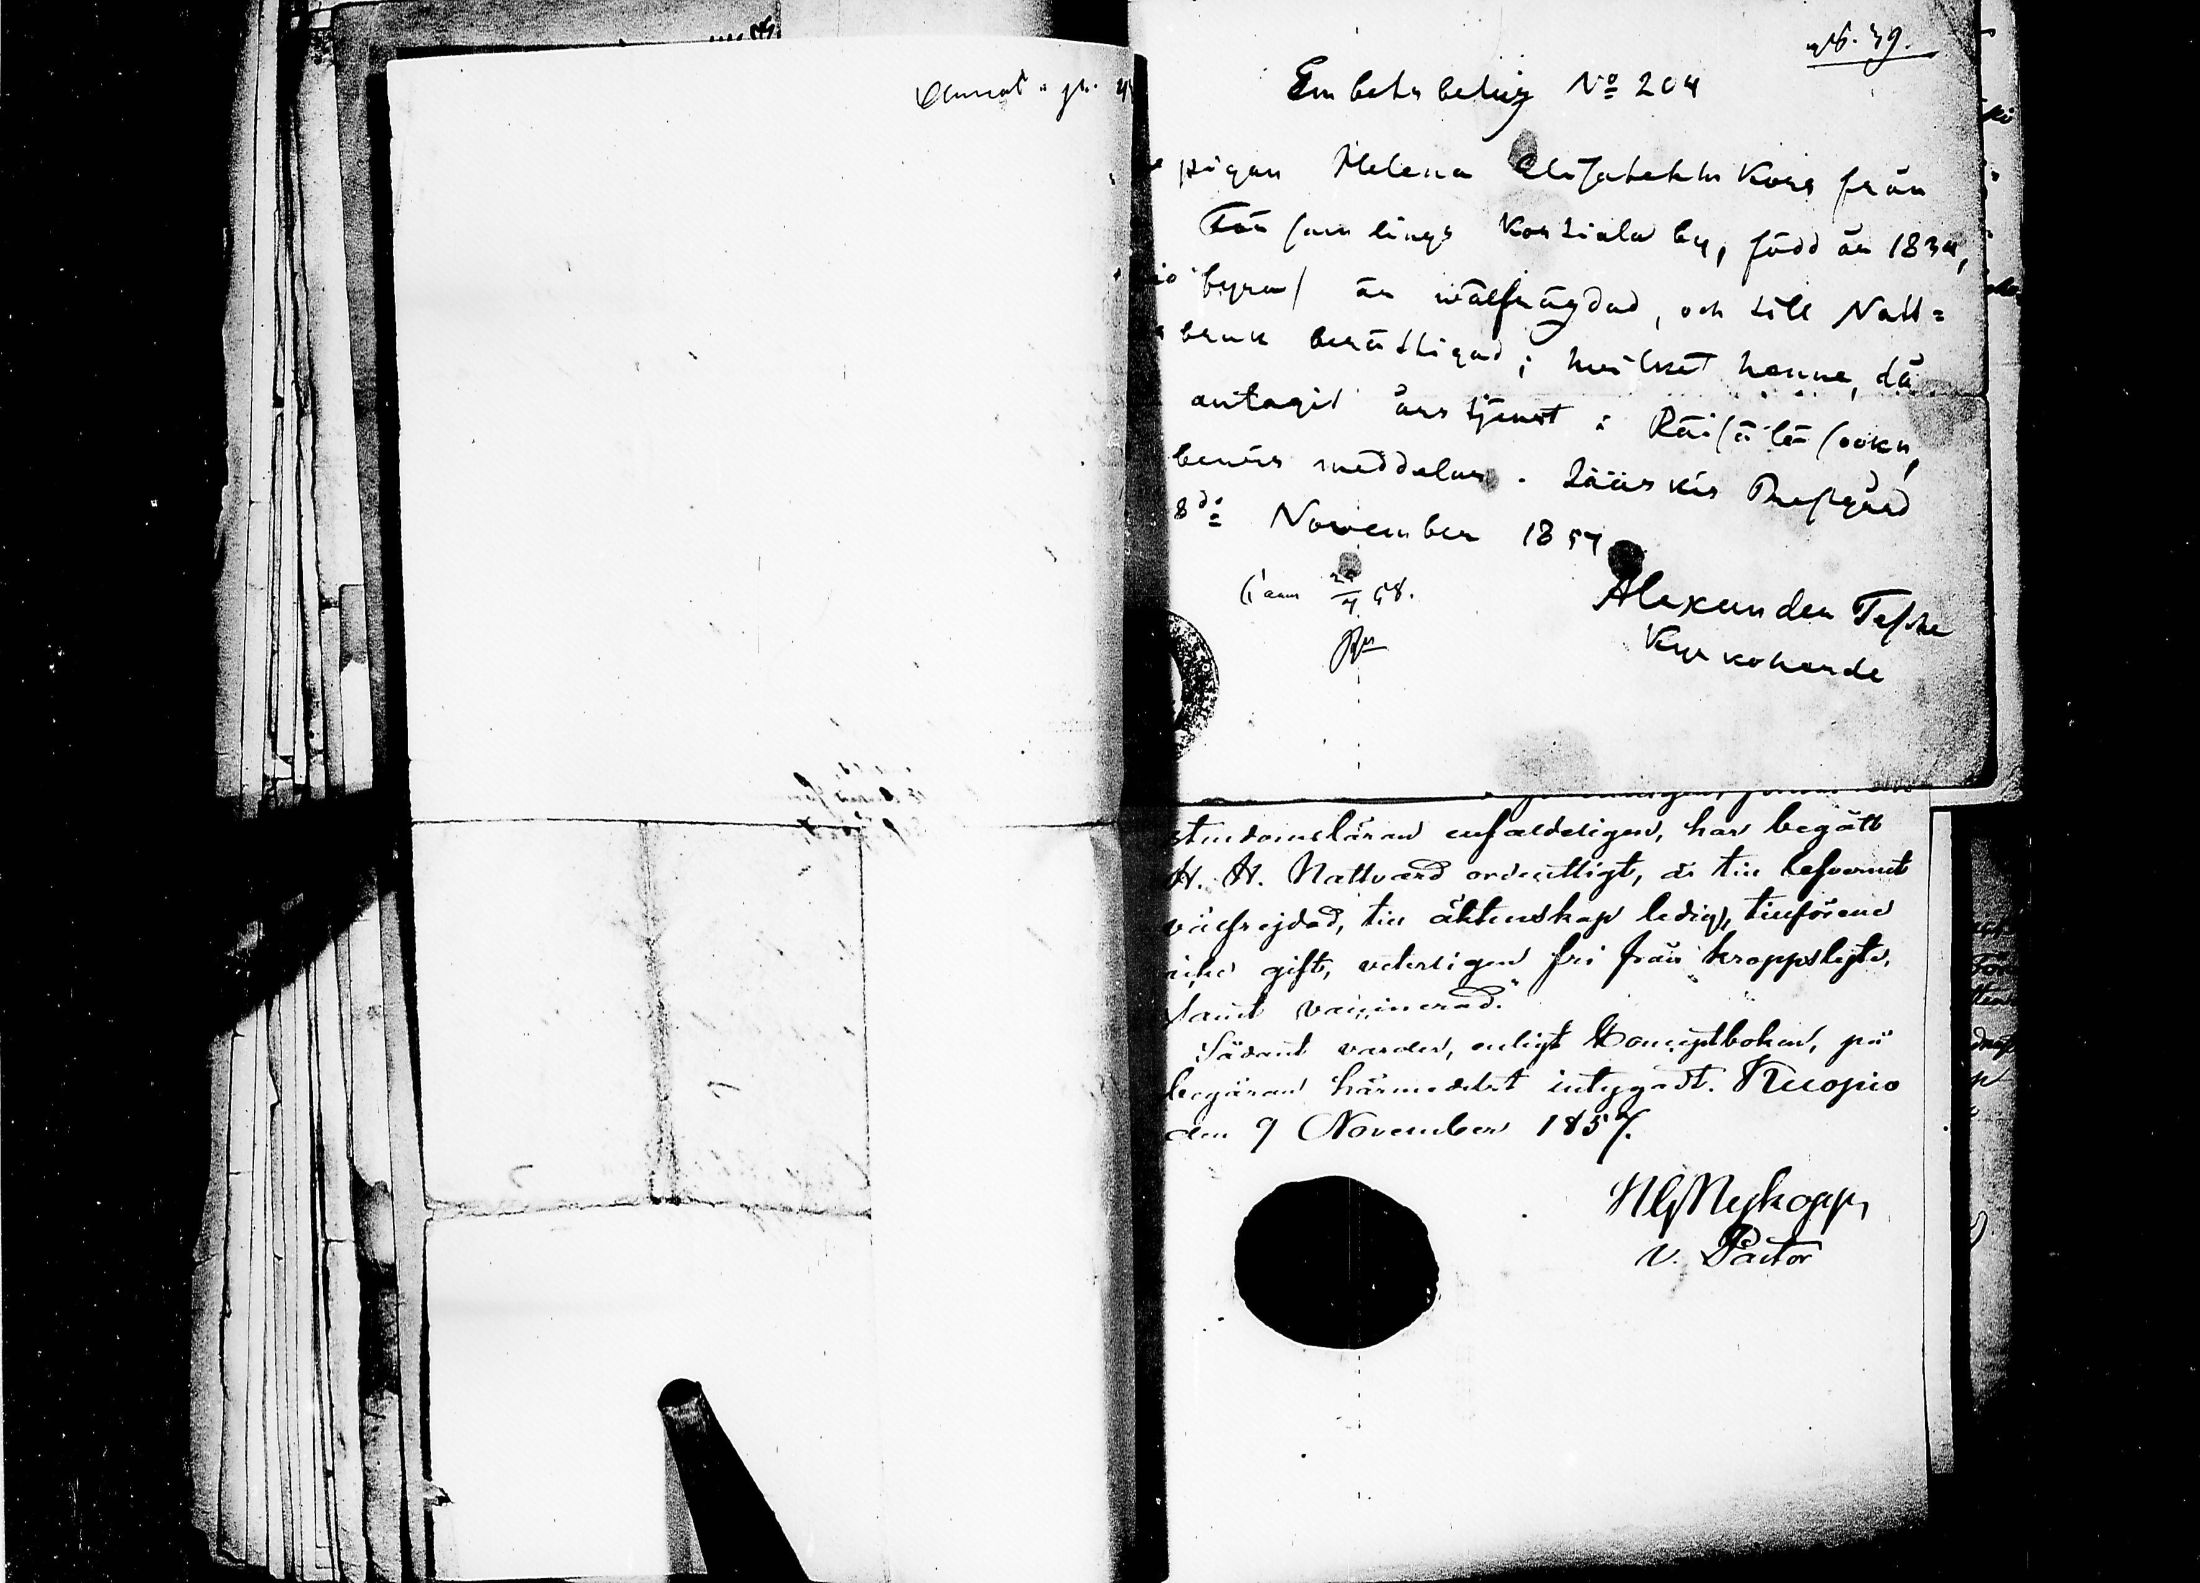 No. 39.
Embetsbetyg No 204
pigan Helena Elisabetha Korp från
Församlings Kostiala by, född år 1834,
byra/ är wälfrägdad, och till Natt=
bruk berättigad; hvilket henne, då
antagit årstjenst i Räisälä socken,
bevis meddelas. Jääskis Prestgård
8de November 1857
58.
Alexander Tesche
Kyrkoherde
stendomsläran enfaldeligen, har begått
H. H. Nattvard ordentligt, är till lefvernet
välfrejdad, till äktenskap ledig, tillförene
icke gift, veterligen fri från kroppslyte,
samt vaccinerad."
Sådant varder, enligt Konceptboken, på
begäran härmedelst intygadt. Kuopio
den 9 November 1857.
Nykopp,
v. Pastor